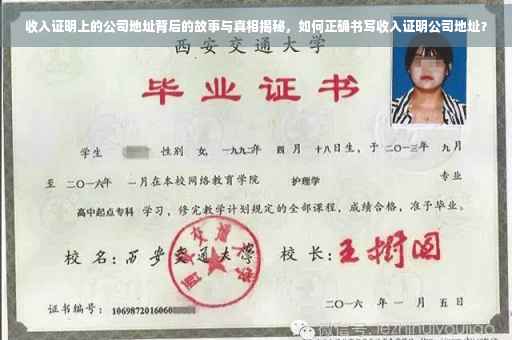 收入证明上的公司地址背后的故事与真相揭秘，如何正确书写收入证明公司地址？
西安交通大学
毕业证书
学生 性别 女，一九九二年 四月 十八日生，于 二〇一三年 九月
至 二〇一六年 一月在本校网络教育学院 护理学 专业
高中起点专科 学习，修完教学计划规定的全部课程，成绩合格，准予毕业。
校 名：西安交通大学 校 长：王树国
西安交通大学
证书编号：1069872016060
二〇一六 年 一 月 五 日
微信号: